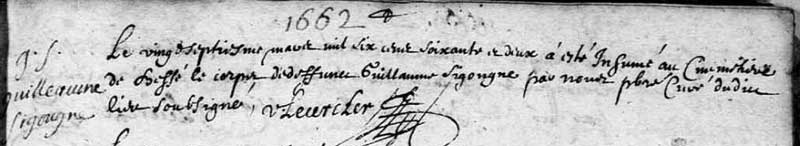 1662
g. S.
Guillaume
Sigougne
Le vingdseptiesme mars mil six cent soixante et deux a esté Inhumé au Cimmétiere
de le corps de deffunct Guillaume Sigougne par nous pbre Curé dudict
lieu soubsigné